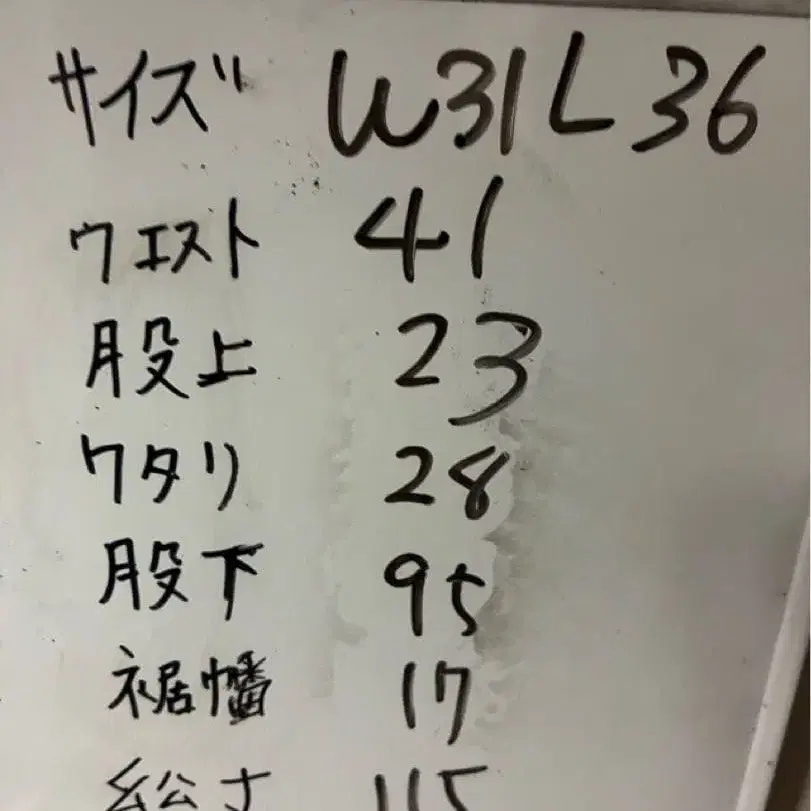 サイズ W31L36
ウエスト 41
股上 23
ワタリ 28
股下 95
裾幡 17
総丈 115